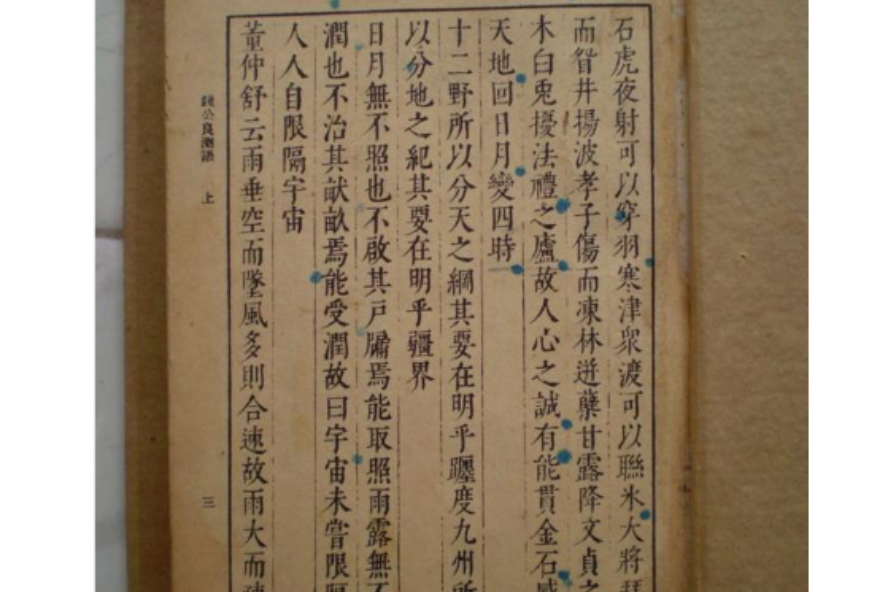 石虎夜射可以穿羽寒津衆渡可以聯氷大將
而眢井揚波孝子傷而凍林迸蘖甘露降文貞之
木白兎擾法禮之廬故人心之誠有能貫金石感
天地回日月變四時
十二野所以分天之綱其要在明乎躔度九州所
以分地之紀其要在明乎疆界
日月無不照也不啟其戸牖焉能取照雨露無不
潤也不治其畎畝焉能受潤故曰宇宙未嘗限隔
人人自限隔宇宙
董仲舒云雨垂空而墜風多則合速故雨大而
錢公良測語 上
三